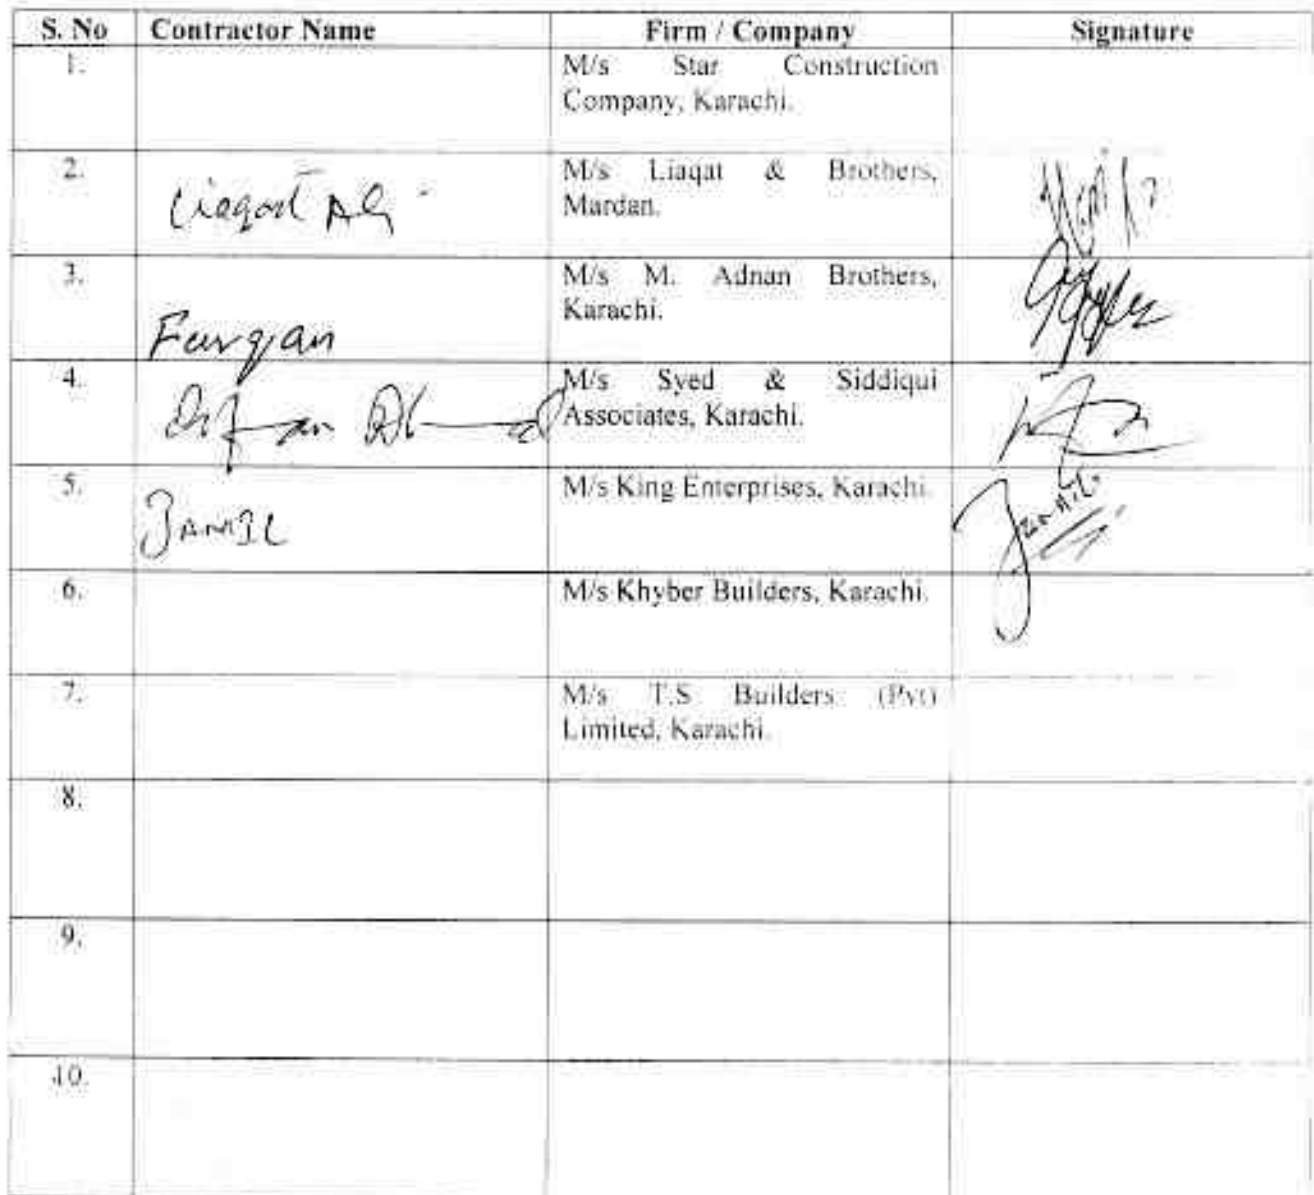 S. No Contractor Name Firm / Company Signature
1. M/s Star Construction
Company, Karachi.
2. Liaqat Ali M/s Liaqat & Brothers,
Mardan.
3. M/s M. Adnan Brothers,
Karachi.
Furqan
4. M/s Syed & Siddiqui
Associates, Karachi.
5. M/s King Enterprises, Karachi.
JAMIL Jamil
6. M/s Khyber Builders, Karachi.
7. M/s T.S Builders (Pvt)
Limited, Karachi.
8.
9.
10.